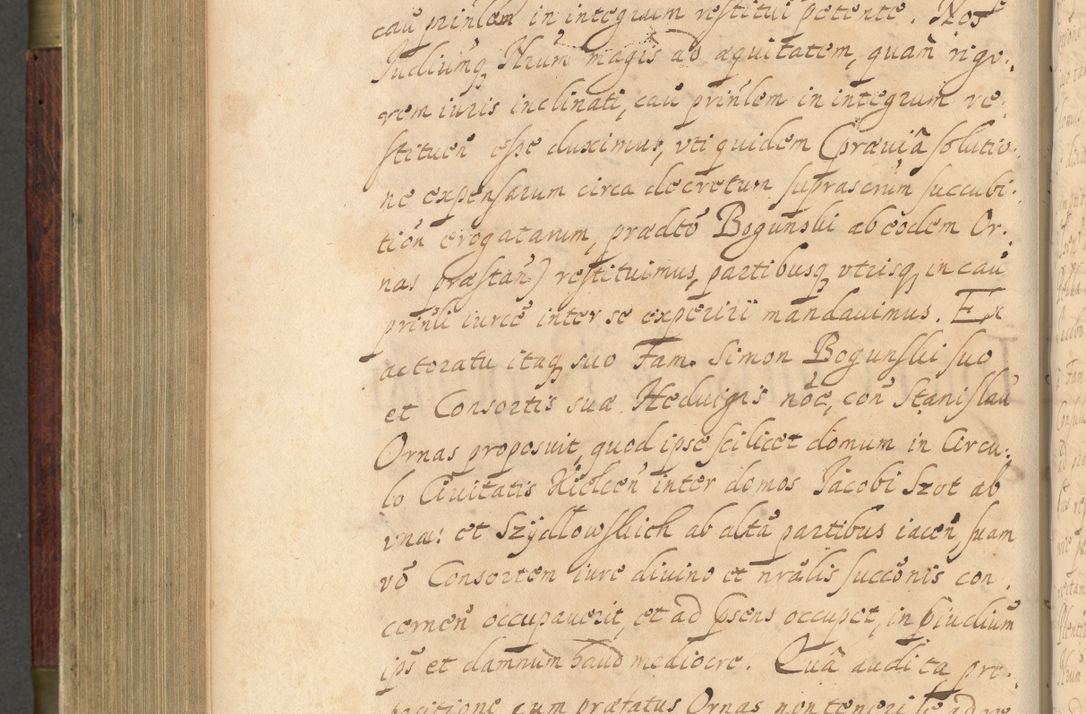 cau͂ prinlem in integrum restitui petente. Nos
Judiumq̨ Nrum magis ad æquitatem, quam̃ rigo:
rem iuris inclinati, cau͂ prinlem in integrum re:
stituen͂ esse duximus, vti quidem prævia͂ solutio:
ne expensarum circa decretum suprascrũm succubi:
tion͂ erogatarum, prædto͂ Bogunski ab eodem Or:
nas præstan͂) restituimus, partibusq̨ vtrisq̨ in cau͂
prinli iurce͂ inter se experiri mandauimus. Ex
actoratu itaq̨ suo Fam. Simon Bogunski suo
et Consortis suæ Heduigis noe͂, con͂ Stanislau͂
Ornas proposuit, quod ipse scilicet domum in Circu:
lo Ciuitatis Kielcen͂ inter domos Jacobi Szot ab
vna: et Szydlowskich ab alta͂ partibus iacen͂ suam
vo͂ Consortem iure diuino et nra͂lis succo͂nis con:
cernen͂ occupauerit, et ad psens occupet, in piudiu͂m
ips͂ et damnum haud mediocre. Qua͂ audita pro:
positione cum præfatus Ornas non teneri se ad re